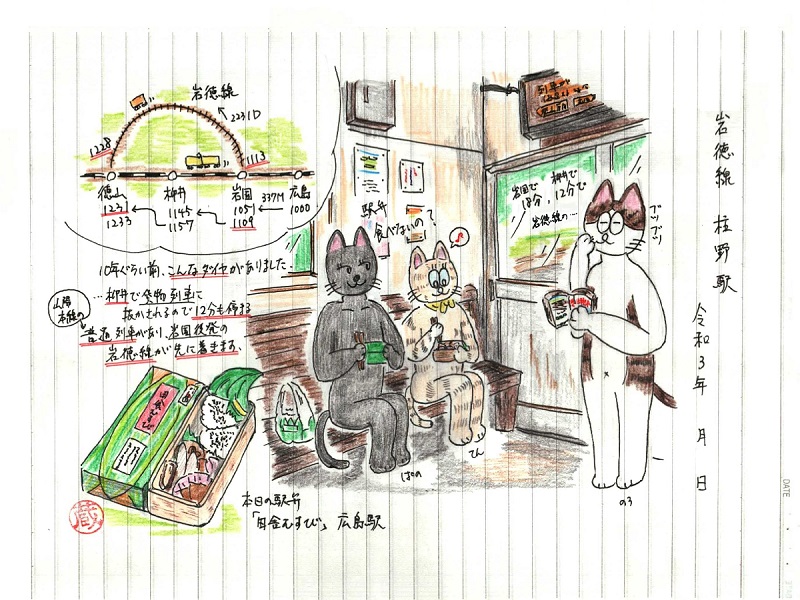 岩徳線 柱野駅
令和3年 月 日
岩徳線
2231D
1228
1113
徳山
柳井
岩国
広島
1231
1145
1051
337M
1000
1233
1157
1109
10年ぐらい前、こんなダイヤがありました。
…柳井で貨物列車に
抜かされるので12分も停まる
山陽本線の
普通列車があり、岩国後発の
岩徳線が先に着きます。
駅弁
食べないの?
列車が
岩国で
18分、
柳井で
12分で
岩徳線の…
ブツブツ
ぱの
てん
のう
本日の駅弁
「田舎むすび」 広島駅
田舎むすび
蔵
DATE